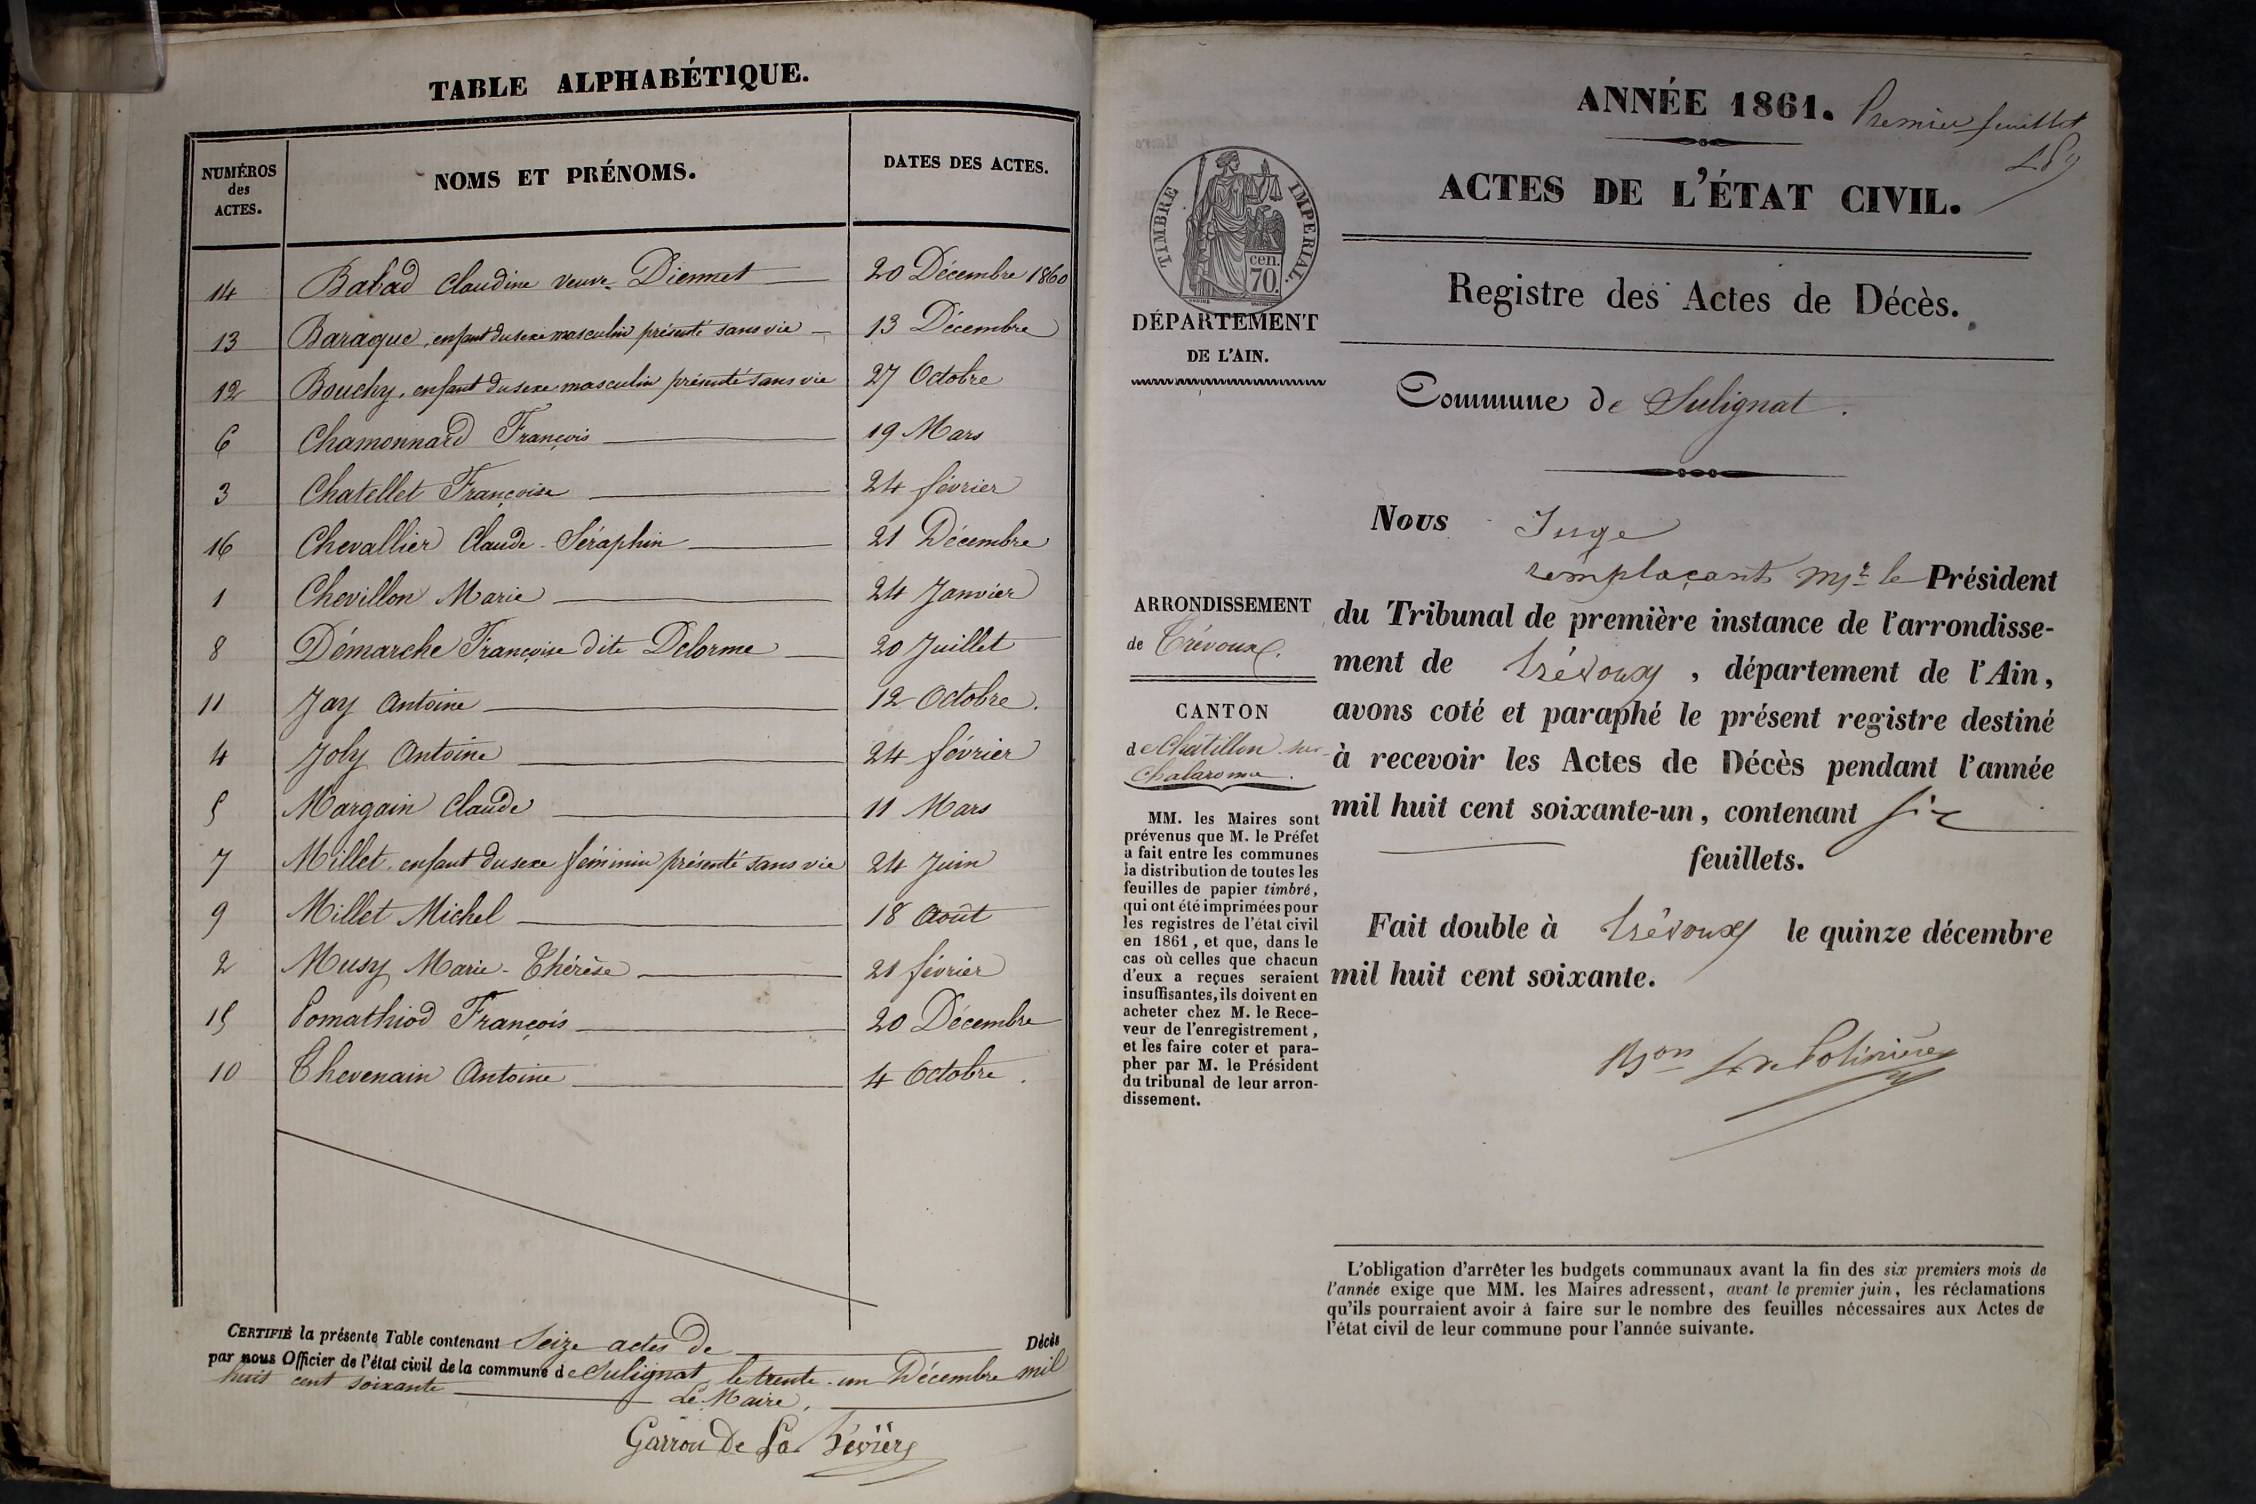 TABLE ALPHABÉTIQUE.
NUMÉROS des ACTES. NOMS ET PRÉNOMS. DATES DES ACTES.
14 Babad Claudine veuve Diennet 20 Décembre 1860
13 Baraque, enfant du sexe masculin présenté sans vie 13 Décembre
12 Bouchy, enfant du sexe masculin présenté sans vie 27 Octobre
6 Chamonnard François 19 Mars
3 Chatellet Françoise 24 février
16 Chevallier Claude-Séraphin 21 Décembre
1 Chevillon Marie 24 Janvier
8 Démarche Françoise dite Delorme 20 Juillet
11 Jay Antoine 12 Octobre.
4 Joly Antoine 24 février
5 Margain Claude 11 Mars
7 Millet, enfant du sexe féminin présenté sans vie 24 Juin
9 Millet Michel 18 Août
2 Musy Marie-Thérèse 21 février
15 Pomathiod François 20 Décembre
10 Thevenain Antoine 4 Octobre.
CERTIFIÉ la présente Table contenant Seize actes de Décès
par nous Officier de l'état civil de la commune de Sulignat, le trente-un Décembre mil
huit cent soixante
Le Maire,
Garron De La Bévière
ANNÉE 1861. Premier feuillet
ACTES DE L'ÉTAT CIVIL.
TIMBRE IMPERIAL.
cen.
70.
Registre des Actes de Décès.
DÉPARTEMENT
DE L'AIN.
Commune de Sulignat.
Nous Juge
remplaçant Mr le Président
ARRONDISSEMENT
de Trévoux.
CANTON
de Châtillon-sur-
Chalaronne.
du Tribunal de première instance de l'arrondisse-
ment de Trévoux, département de l'Ain,
avons coté et paraphé le présent registre destiné
à recevoir les Actes de Décès pendant l'année
mil huit cent soixante-un, contenant six
feuillets.
Fait double à Trévoux le quinze décembre
mil huit cent soixante.
MM. les Maires sont
prévenus que M. le Préfet
a fait entre les communes
la distribution de toutes les
feuilles de papier timbré,
qui ont été imprimées pour
les registres de l'état civil
en 1861, et que, dans le
cas où celles que chacun
d'eux a reçues seraient
insuffisantes, ils doivent en
acheter chez M. le Rece-
veur de l'enregistrement,
et les faire coter et para-
pher par M. le Président
du tribunal de leur arron-
dissement.
L'obligation d'arrêter les budgets communaux avant la fin des six premiers mois de
l'année exige que MM. les Maires adressent, avant le premier juin, les réclamations
qu'ils pourraient avoir à faire sur le nombre des feuilles nécessaires aux Actes de
l'état civil de leur commune pour l'année suivante.